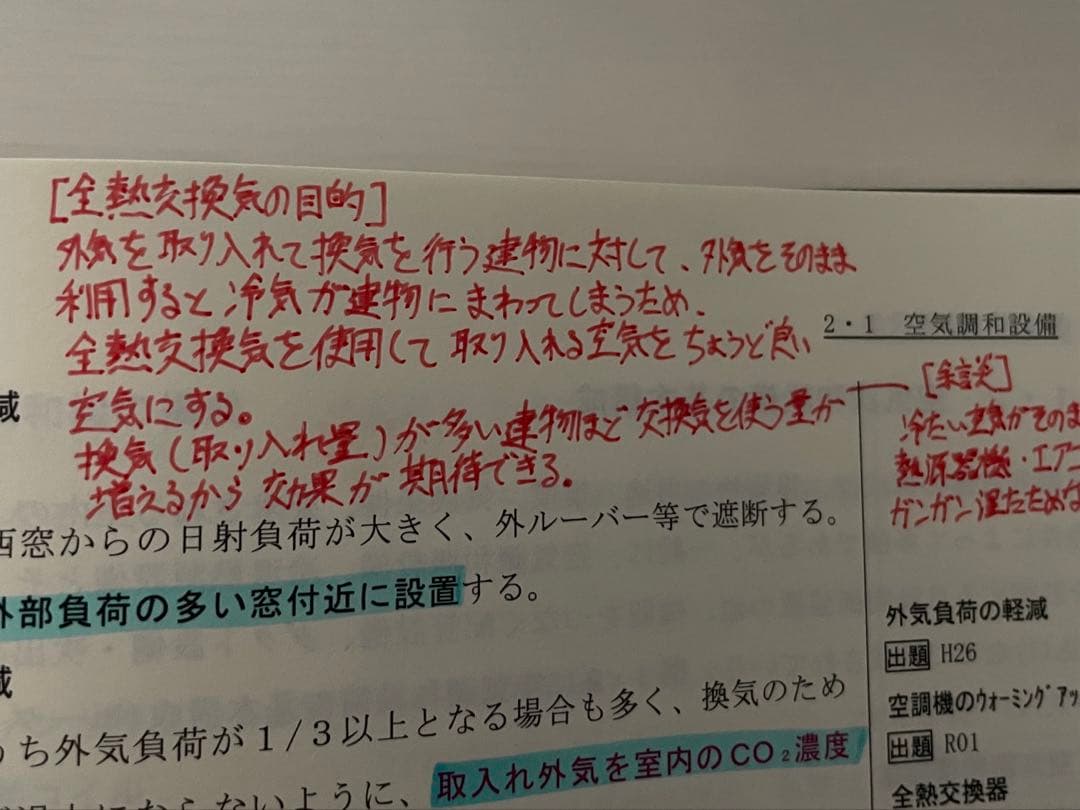 [全熱交換気の目的]
外気を取り入れて換気を行う建物に対して、外気をそのまま
利用すると冷気が建物にまわってしまうため、
全熱交換気を使用して取り入れる空気をちょうど良い
空気にする。
換気(取り入れ量)が多い建物ほど交換気を使う量が
増えるから効果が期待できる。
2・1 空気調和設備
[余談]
冷たい空気がそのま
熱源器機・エアコ
ガンガン
減
西窓からの日射負荷が大きく、外ルーバー等で遮断する。
外部負荷の多い窓付近に設置する。
減
うち外気負荷が1/3以上となる場合も多く、換気のため
ならないように、取入れ外気を室内のCO₂濃度
外気負荷の軽減
出題 H26
空調機のウォーミングアッ
出題 R01
全熱交換器